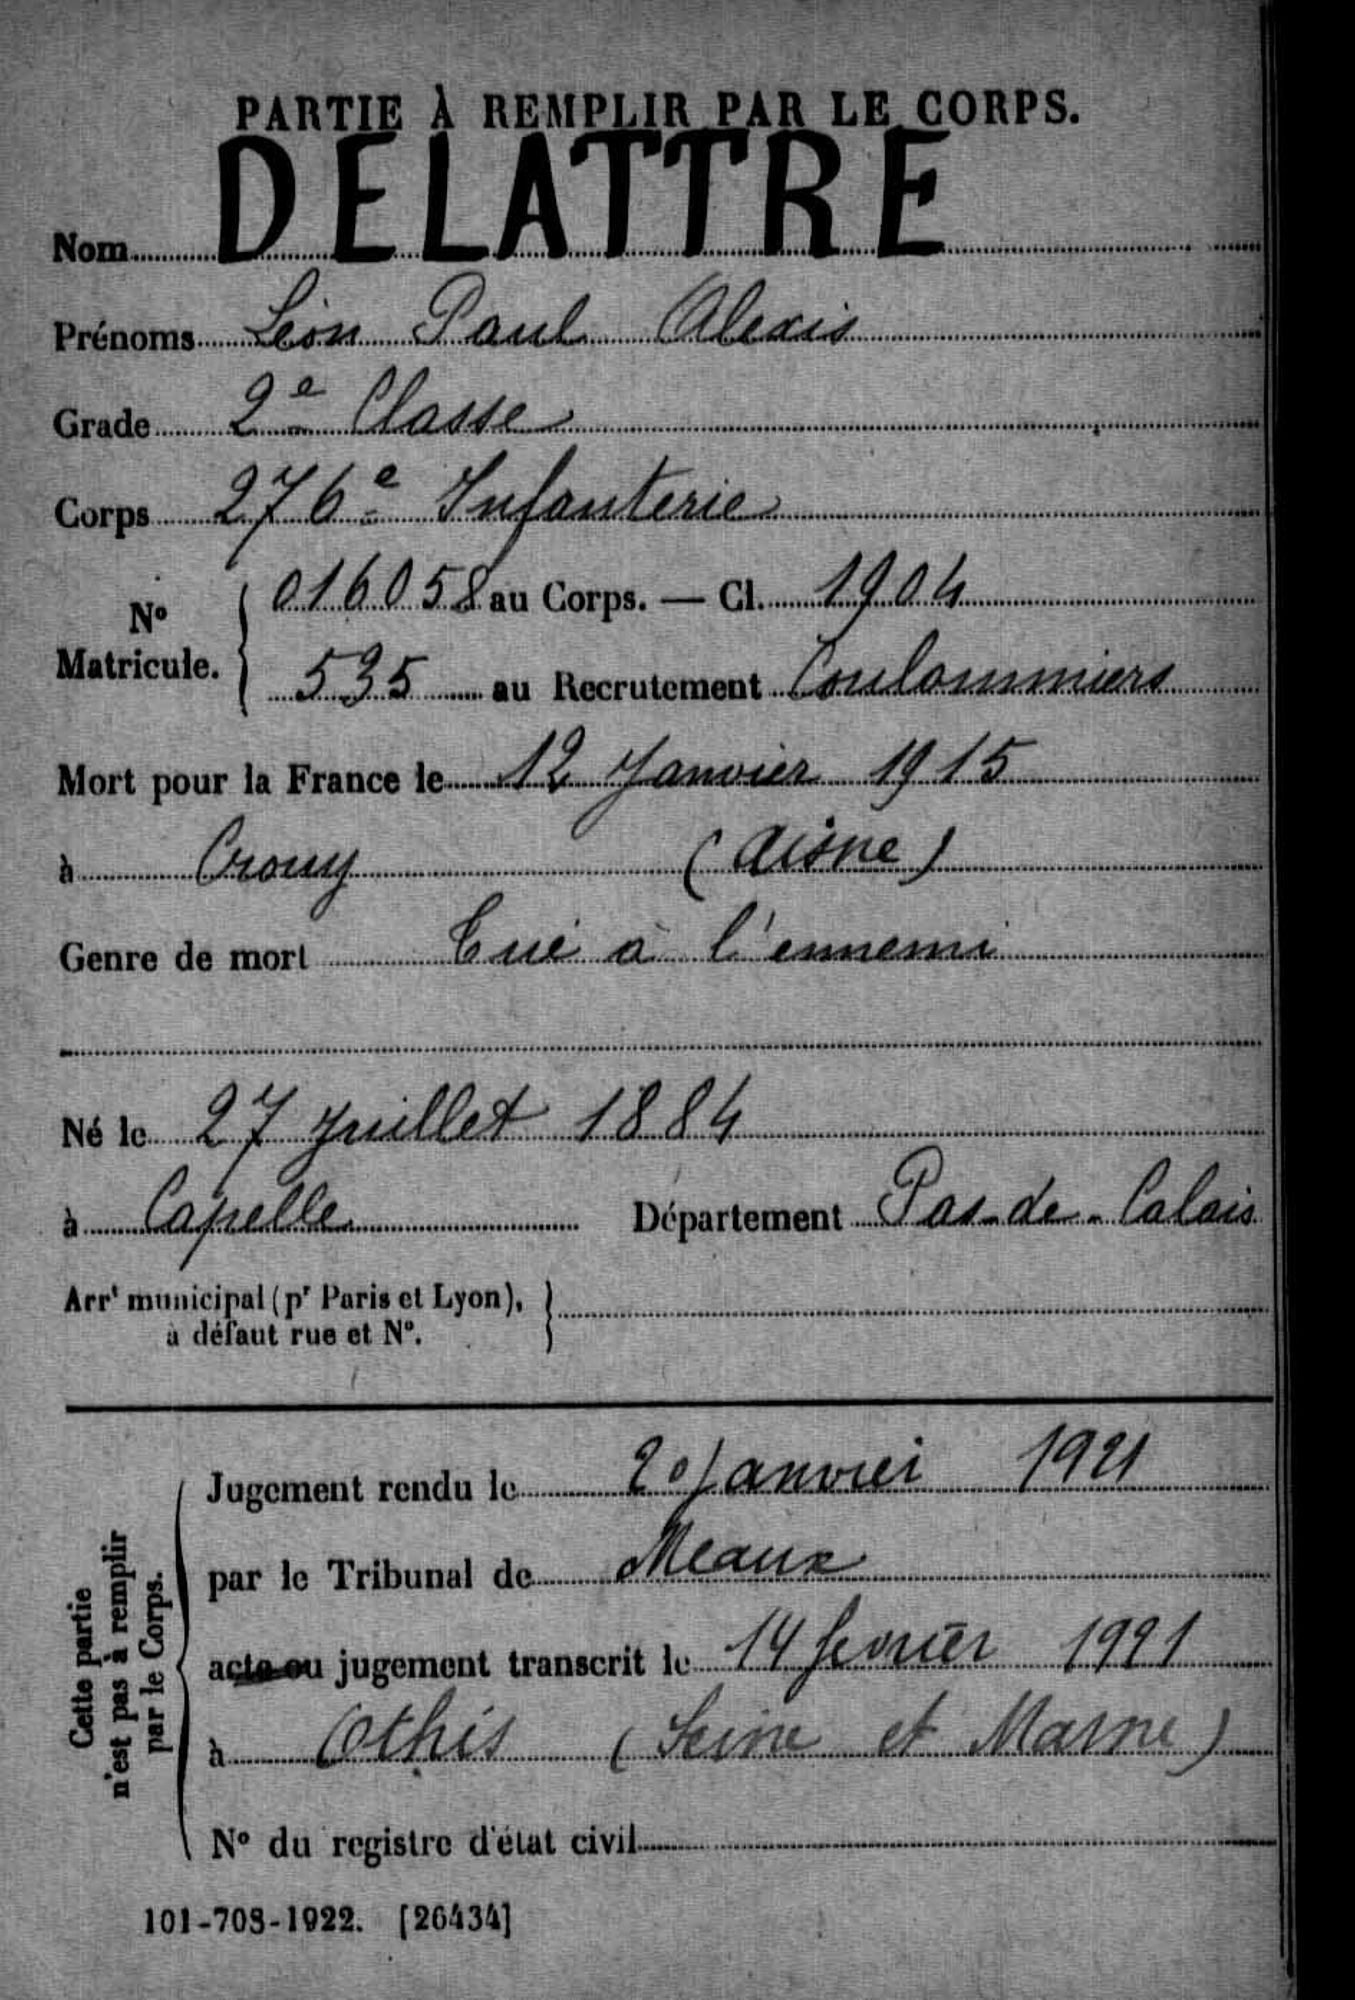 PARTIE À REMPLIR PAR LE CORPS.
Nom DELATTRE
Prénoms Léon Paul Alexis
Grade 2e Classe
Corps 276e Infanterie
No Matricule. 016058 au Corps. — Cl. 1904
535 au Recrutement Coulommiers
Mort pour la France le 12 Janvier 1915
à Crouy (Aisne)
Genre de mort Tué à l'ennemi
Né le 27 Juillet 1884
à Capelle Département Pas-de-Calais
Arrt municipal (pr Paris et Lyon),
à défaut rue et No.
Cette partie
n'est pas à remplir
par le Corps.
Jugement rendu le 20 Janvier 1921
par le Tribunal de Meaux
acte ou jugement transcrit le 14 février 1921
à Othis (Seine et Marne)
No du registre d'état civil
101-708-1922. [26434]